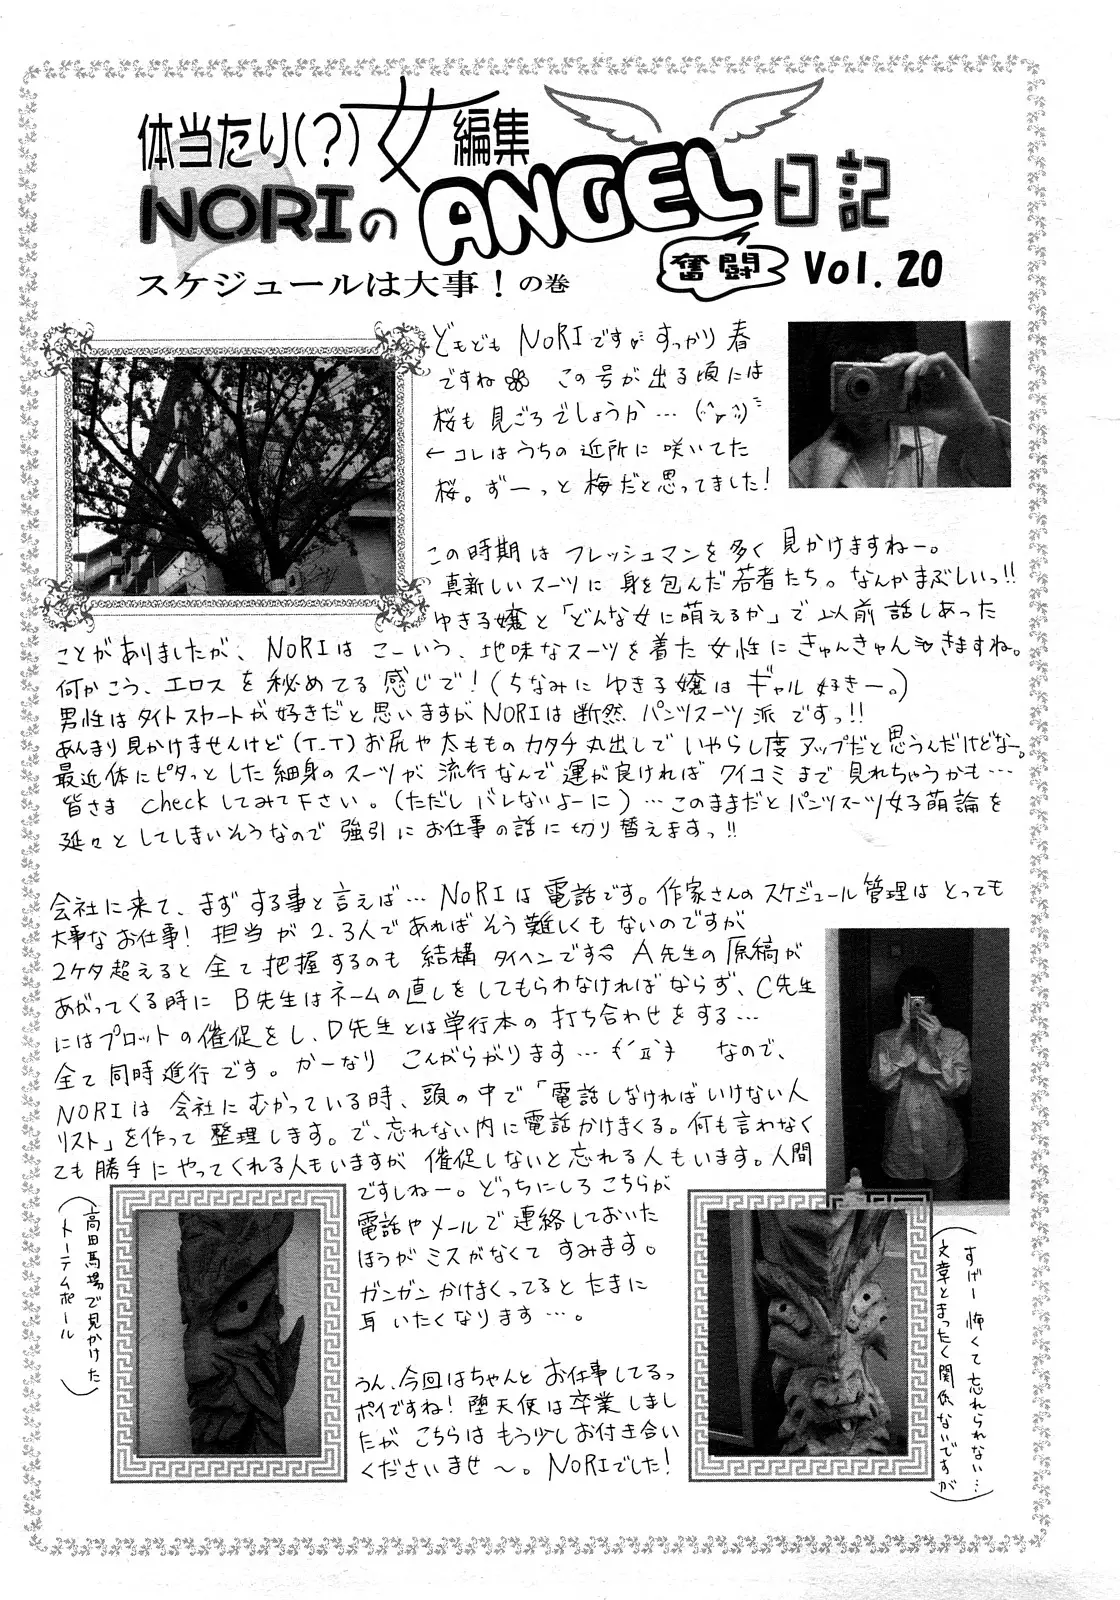 体当たり(?)女編集
NORIのANGEL日記
奮闘
Vol.20
スケジュールは大事!の巻
どもども NORIですが すっかり春
ですね この号が出る頃には
桜も見ごろでしょうか…
←コレはうちの近所に咲いてた
桜。ずーっと梅だと思ってました!
この時期は フレッシュマンを多く見かけますねー。
真新しいスーツに身を包んだ若者たち。なんかまぶしいっ!!
ゆき子嬢と「どんな女に萌えるか」で以前話しあった
ことがありましたが、NORIはこーいう、地味なスーツを着た女性にきゅんきゅんきますね。
何かこう、エロスを秘めてる感じで!(ちなみにゆき子嬢はギャル好きー。)
男性はタイトスカートが好きだと思いますがNORIは断然パンツスーツ派ですっ!!
あんまり見かけませんけど(T_T)お尻や太もものカタチ丸出しでいやらし度アップだと思うんだけどなー。
最近体にピタっとした細身のスーツが流行なんで運が良ければクイコミまで見れちゃうかも…
皆さまcheckしてみて下さい。(ただしバレないよーに)…このままだとパンツスーツ女子萌論を
延々としてしまいそうなので強引にお仕事の話に切り替えますっ!!
会社に来て、まずする事と言えば…NORIは電話です。作家さんのスケジュール管理はとっても
大事なお仕事!担当が2、3人であればそう難しくもないのですが
2ケタ超えると全て把握するのも結構タイヘンです A先生の原稿が
あがってくる時にB先生はネームの直しをしてもらわなければならず、C先生
にはプロットの催促をし、D先生とは単行本の打ち合わせをする…
全て同時進行です。かーなりこんがらがります… なので、
NORIは会社にむかっている時、頭の中で「電話しなければいけない人
リスト」を作って整理します。で、忘れない内に電話かけまくる。何も言わなく
ても勝手にやってくれる人もいますが催促しないと忘れる人もいます。人間
ですしねー。どっちにしろこちらが
電話やメールで連絡しておいた
ほうがミスがなくてすみます。
ガンガンかけまくってるとたまに
耳いたくなります…。
うん、今回はちゃんとお仕事してるっ
ポイですね!堕天使は卒業しまし
たがこちらはもう少しお付き合い
くださいませ〜。NORIでした!
(高田馬場で見かけた
トーテムポール)
(すげー怖くて忘れられない…
文章とまったく関係ないですが)